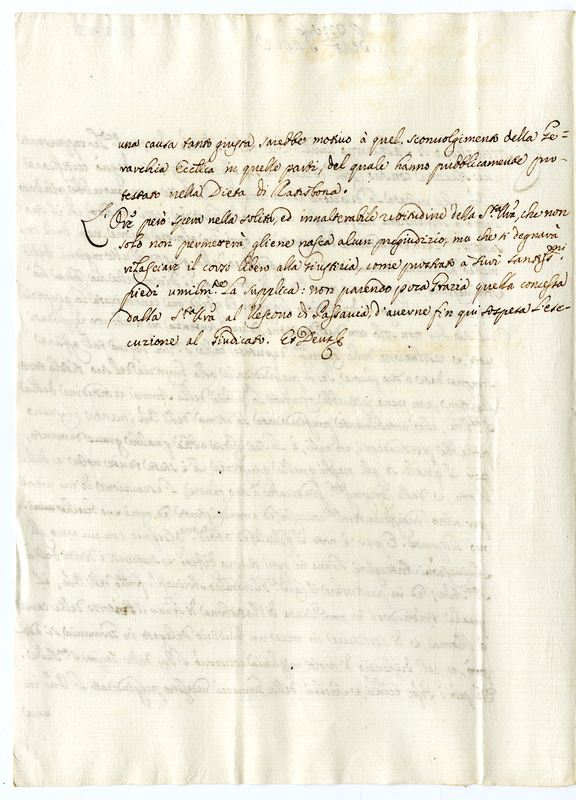 una causa tanto giusta, sarebbe motivo à quel sconvolgimento della Ge=
rarchia Ecc.lica in quelle parti, del quale hanno pubblicamente pro-
testato nella Dieta di Ratisbona.
L'Or.e però spera nella solita, ed innalterabile rettitudine della S.tà V.ra, che non
solo non permetterà gliene nasca alcun pregiudizio, ma che si degnarà
rilasciare il corso libero alla Giustizia, come prostrato a Suoi Santiss.mi
piedi umilm.te La supplica: non parendo poca Grazia quella concessa
dalla S.tà V.ra al Vescovo di Passavia, d'averne fin qui sospesa l'ese-
cuzione al Giudicato. Et Deus &